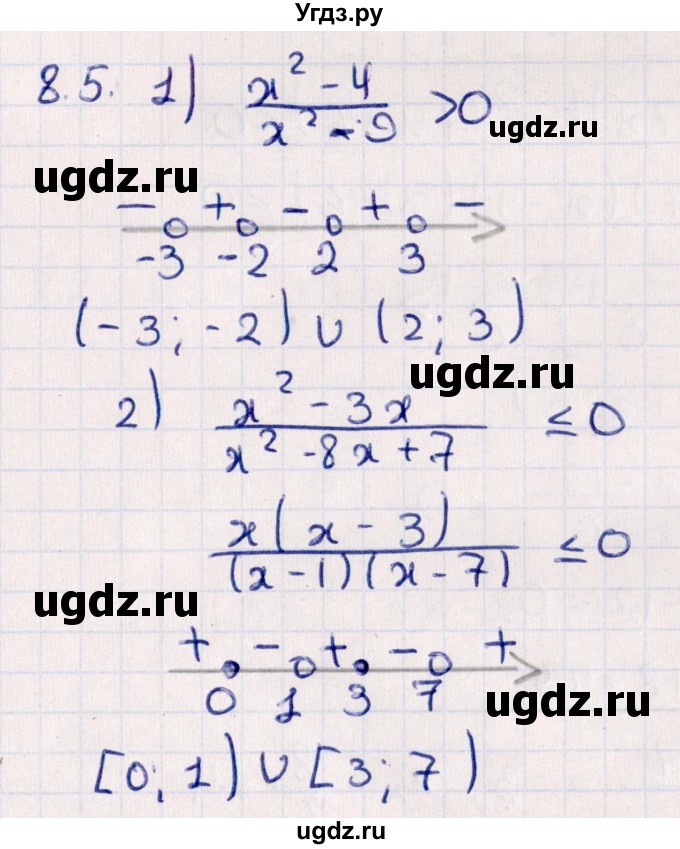 Угдз.ру
8.5. 1) (x² - 4)/(x² - 9) > 0
ugdz.ru
ugdz.ru
- + - + -
-3 -2 2 3
(-3; -2) ∪ (2; 3)
ugdz.ru
2) (x² - 3x)/(x² - 8x + 7) ≤ 0
x(x - 3)/(x - 1)(x - 7) ≤ 0
ugdz.ru
+ - + - +
0 1 3 7
ugdz.ru
[0; 1) ∪ [3; 7)
ugdz.ru